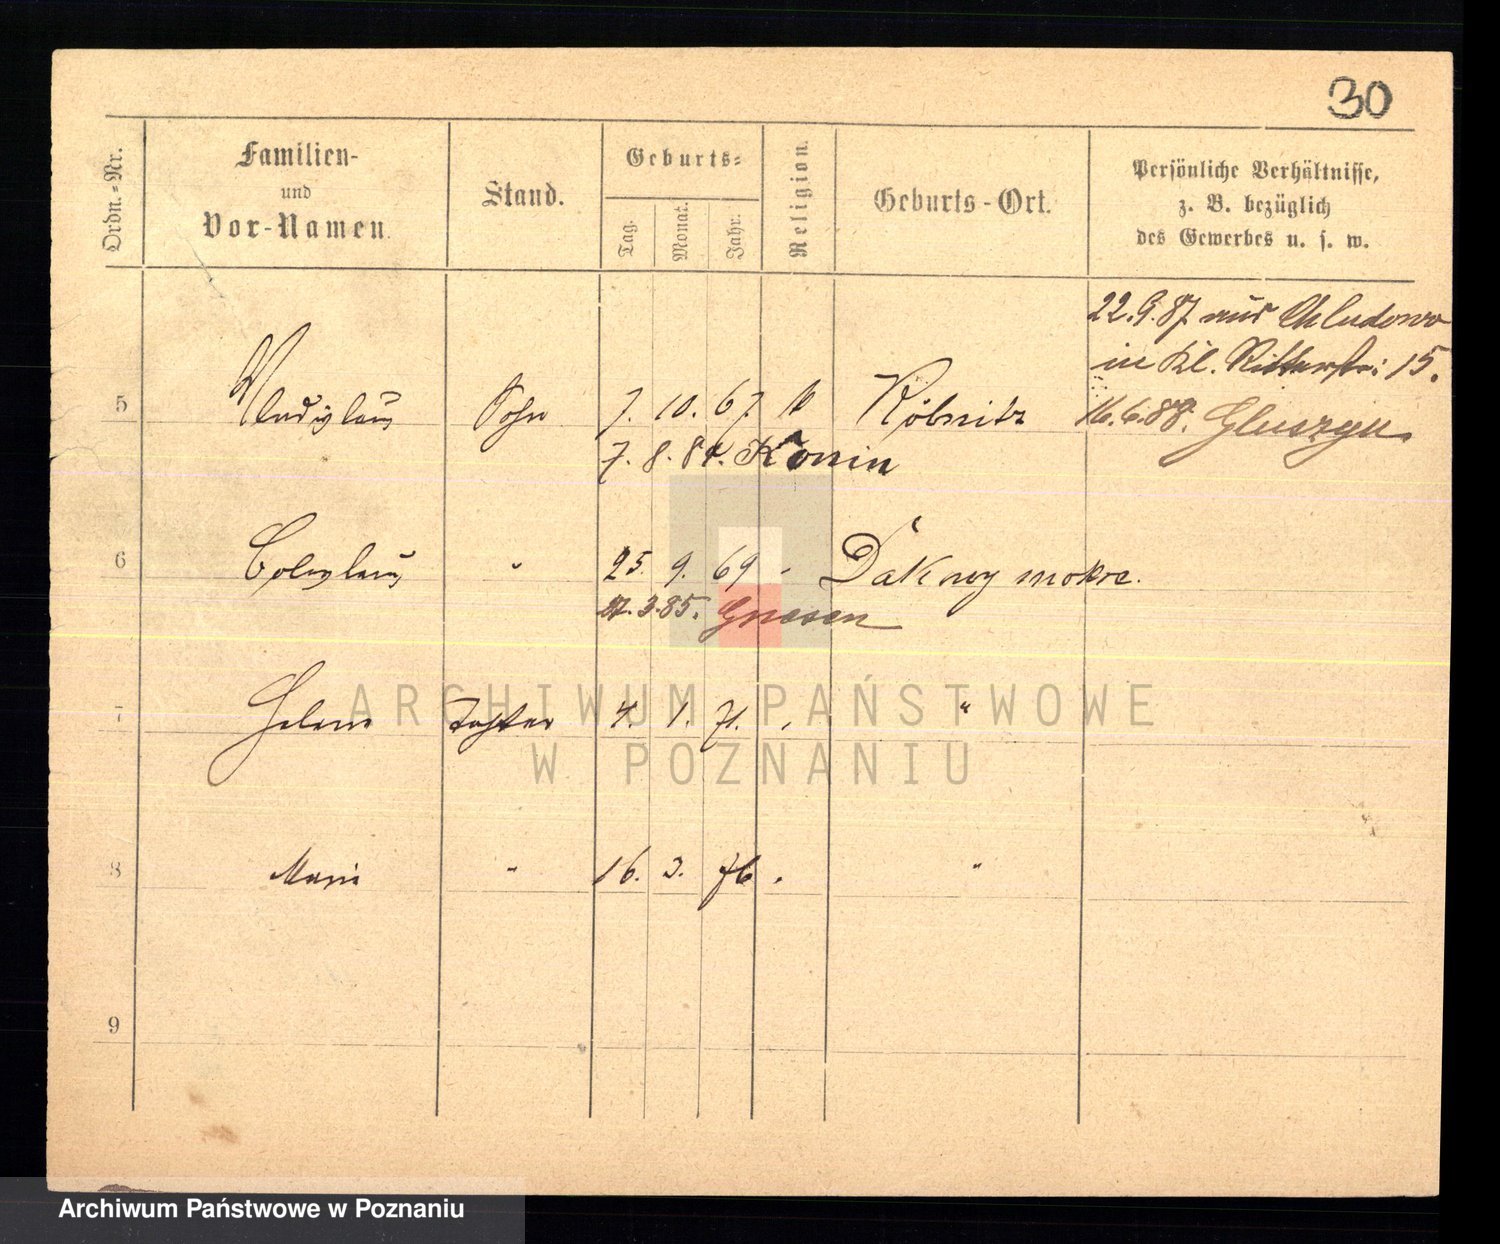 30
Ordn.-Nr.
Familien-
und
Vor-Namen.
Stand.
Geburts-
Tag.
Monat.
Jahr.
Religion.
Geburts-Ort.
Persönliche Verhältnisse,
z. B. bezüglich
des Gewerbes u. s. w.
22.9.87. aus Chludowo
in Kl. Ritterstr: 15.
5 Wladislaus Sohn 7. 10. 67. k Köbnitz 16.6.88. Gluszyn
7. 8. 84. Konin
6 Boleslaus " 25. 9. 69 " Dakowy mokre.
27. 3. 85. Gnesen
7 Helene Tochter 4. 1. 71. " "
8 Marie " 16. 3. 76 " "
9
ARCHIWUM PAŃSTWOWE
W POZNANIU
Archiwum Państwowe w Poznaniu